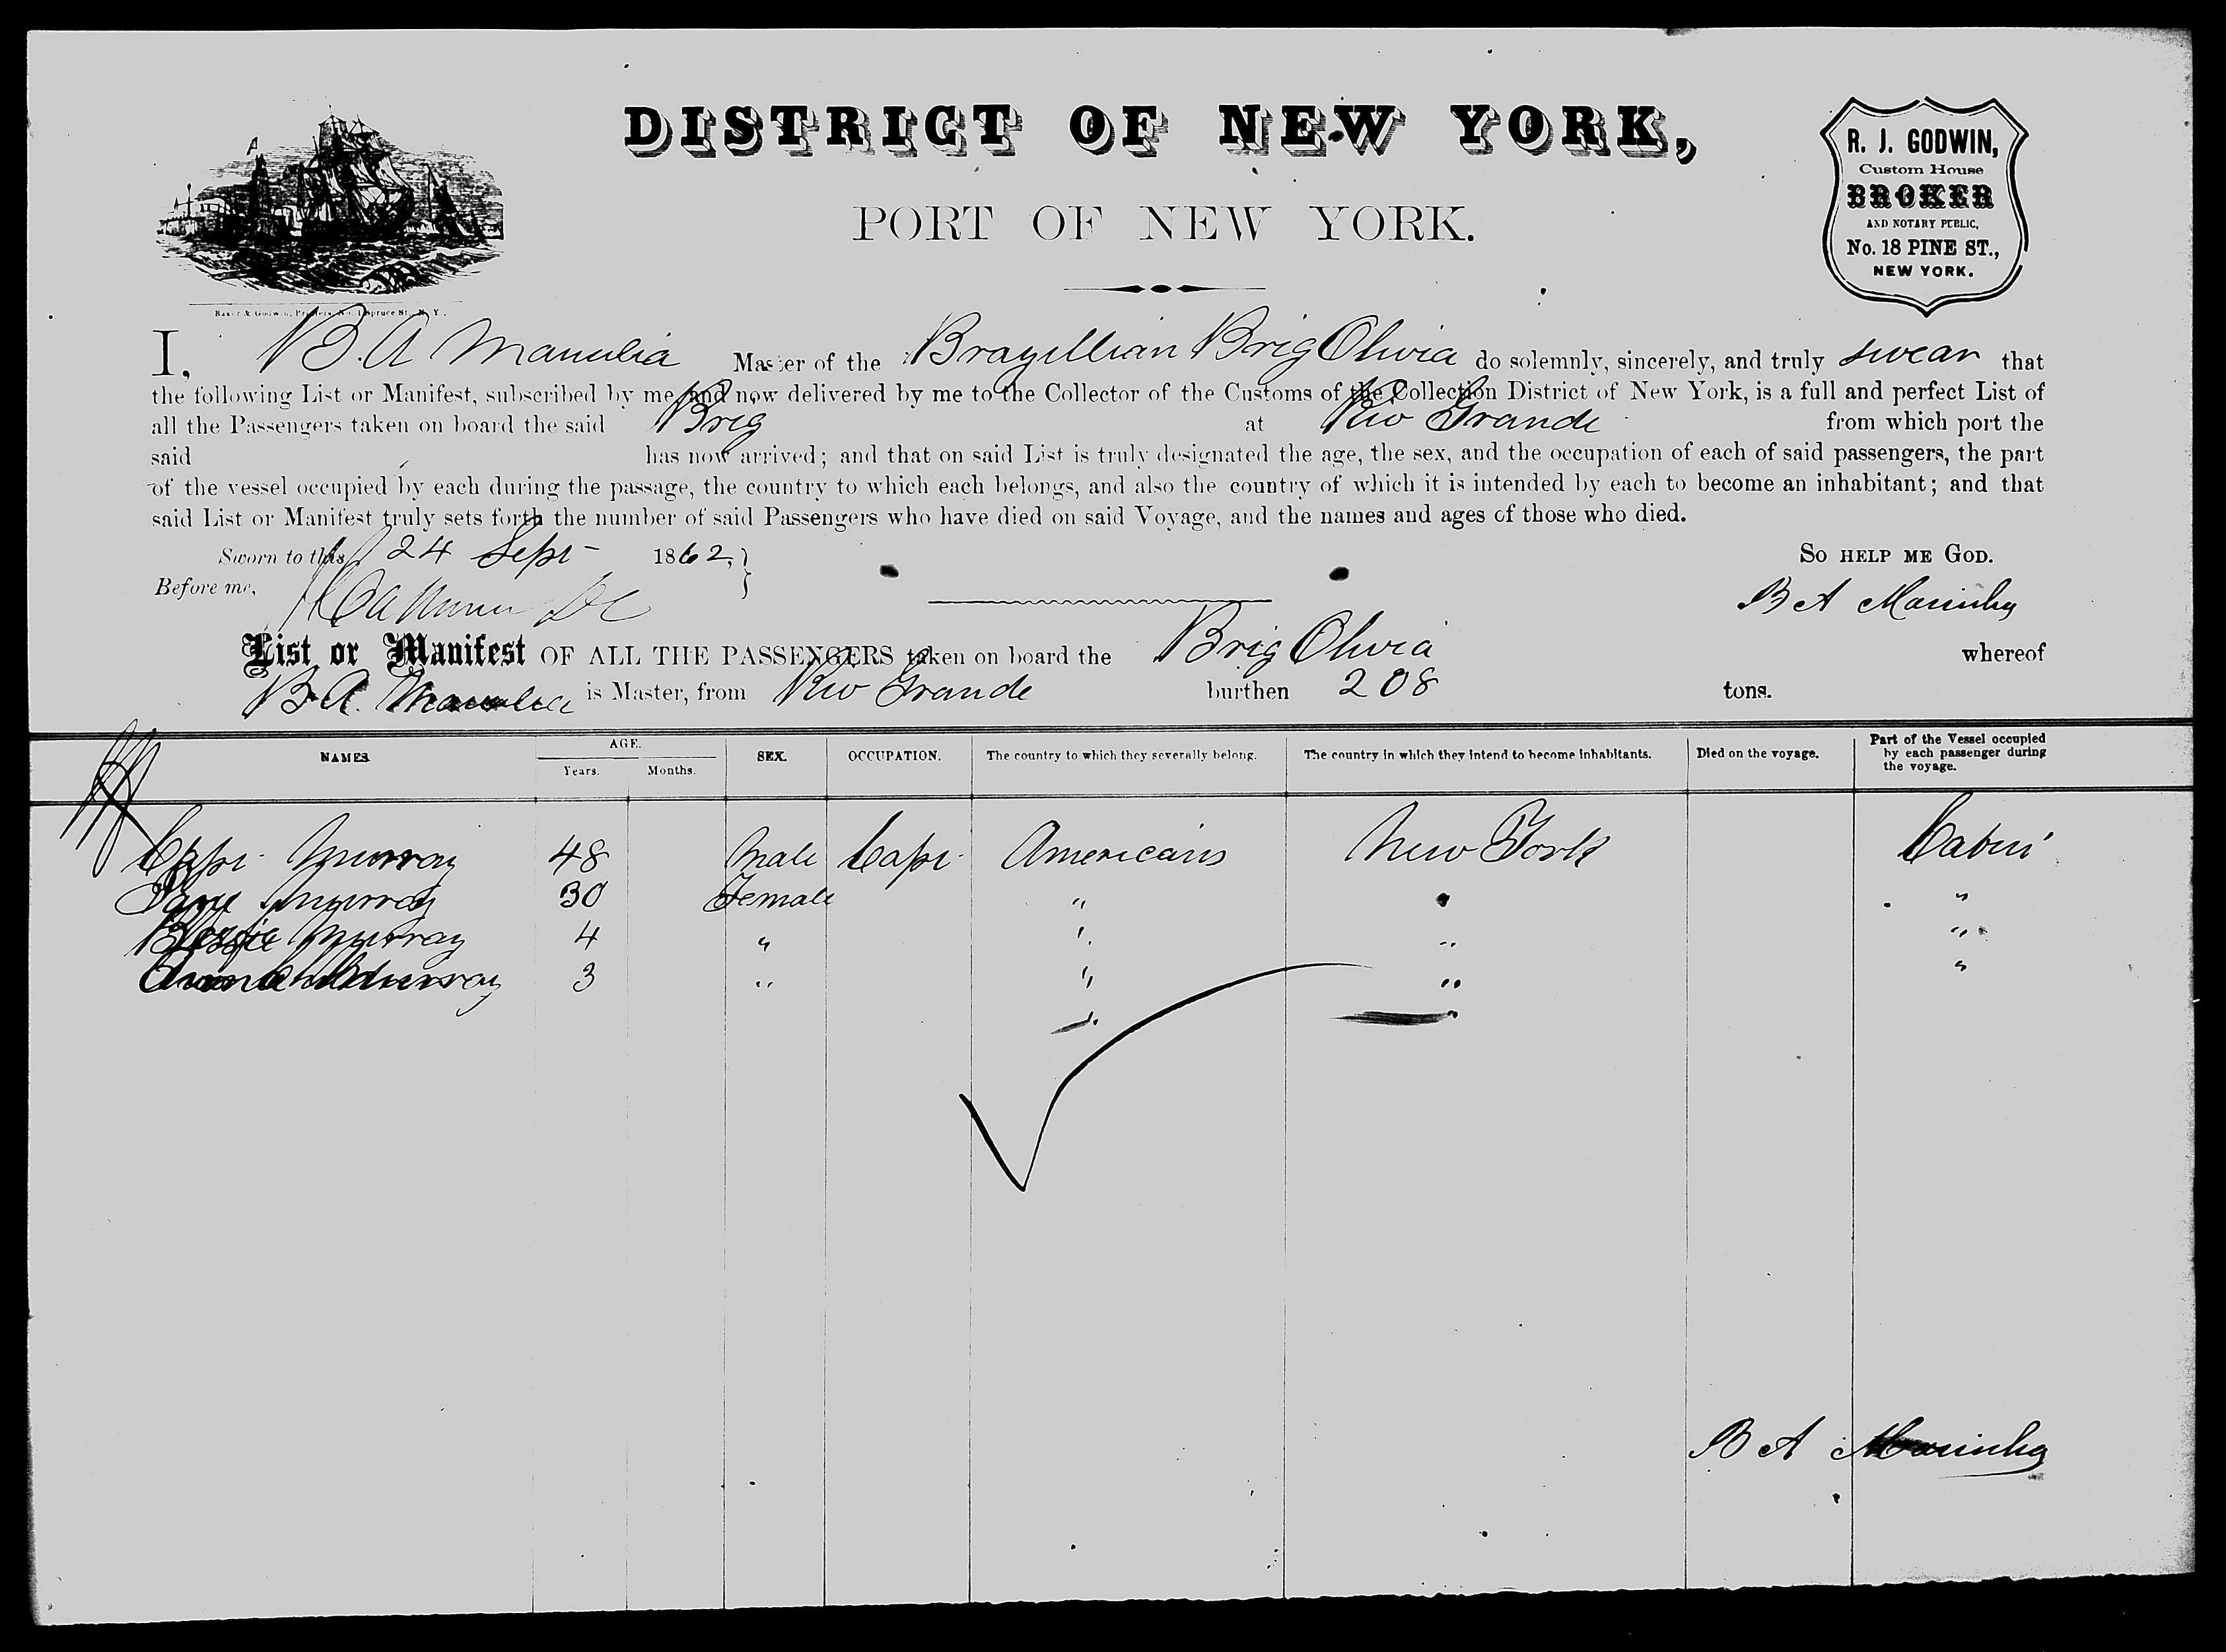 DISTRICT OF NEW YORK,
PORT OF NEW YORK.
R. J. GODWIN,
Custom House
BROKER
AND NOTARY PUBLIC,
No. 18 PINE ST.,
NEW YORK.
Baker & Godwin, Printers, No. 1 Spruce St., N. Y.
I, B. A Manulia Master of the Brazillian Brig Olivia do solemnly, sincerely, and truly swear that
the following List or Manifest, subscribed by me, and now delivered by me to the Collector of the Customs of the Collection District of New York, is a full and perfect List of
all the Passengers taken on board the said Brig at Rio Grande from which port the
said has now arrived; and that on said List is truly designated the age, the sex, and the occupation of each of said passengers, the part
of the vessel occupied by each during the passage, the country to which each belongs, and also the country of which it is intended by each to become an inhabitant; and that
said List or Manifest truly sets forth the number of said Passengers who have died on said Voyage, and the names and ages of those who died.
Sworn to this 24 Sept 1862, } SO HELP ME GOD.
Before me,
B A Marinho
List or Manifest OF ALL THE PASSENGERS taken on board the Brig Olivia whereof
B. A. is Master, from Rio Grande burthen 208 tons.
NAMES AGE. Years. Months. SEX. OCCUPATION. The country to which they severally belong. The country in which they intend to become inhabitants. Died on the voyage. Part of the Vessel occupied by each passenger during the voyage.
Capt. Murray 48 Male Capt Americans New York Cabin
Jane Murray 30 Female " " "
Bessie Murray 4 " " " "
Murray 3 " " " "
" "
B A Marinho